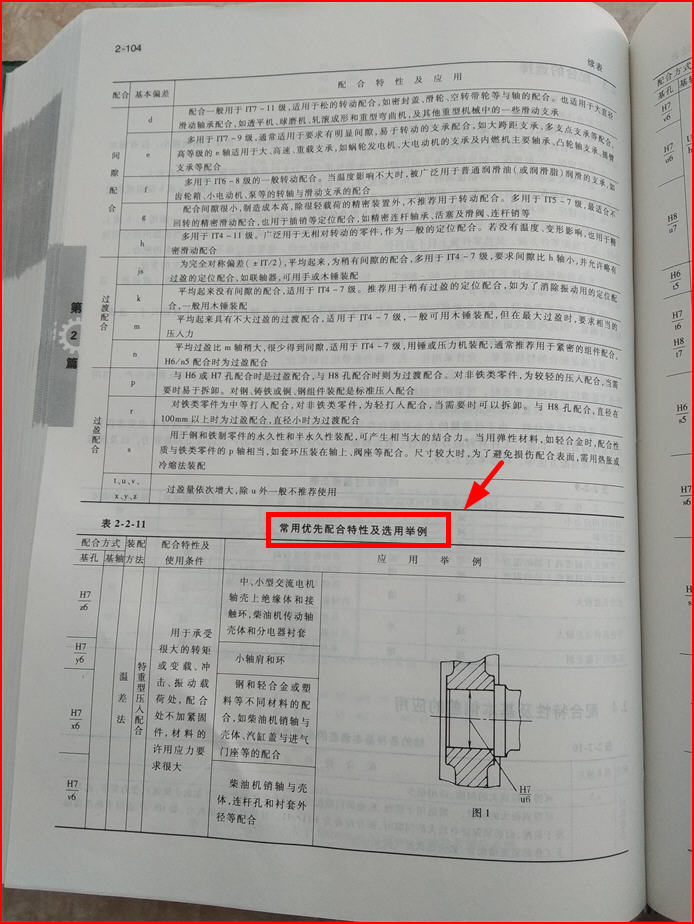 2-104
续表
配合 基本偏差 配合特性及应用
间隙配合
d
配合一般用于IT7~11级,适用于松的转动配合,如密封盖、滑轮、空转带轮等与轴的配合。也适用于大直径
滑动轴承配合,如透平机、球磨机、轧滚成形和重型弯曲机,及其他重型机械中的一些滑动支承
e
多用于IT7~9级,通常适用于要求有明显间隙,易于转动的支承配合,如大跨距支承、多支点支承等配合。
高等级的e轴适用于大、高速、重载支承,如蜗轮发电机、大电动机的支承及内燃机主要轴承、凸轮轴支承、摇臂
支承等配合
f
多用于IT6~8级的一般转动配合。当温度影响不大时,被广泛用于普通润滑油(或润滑脂)润滑的支承,如
齿轮箱、小电动机、泵等的转轴与滑动支承的配合
g
配合间隙很小,制造成本高,除很轻载荷的精密装置外,不推荐用于转动配合。多用于IT5~7级,最适合不
回转的精密滑动配合,也用于插销等定位配合,如精密连杆轴承、活塞及滑阀、连杆销等
h
多用于IT4~11级。广泛用于无相对转动的零件,作为一般的定位配合。若没有温度、变形影响,也用于精
密滑动配合
过渡配合
js
为完全对称偏差(±IT/2),平均起来,为稍有间隙的配合,多用于IT4~7级,要求间隙比h轴小,并允许略有
过盈的定位配合,如联轴器,可用手或木锤装配
k
平均起来没有间隙的配合,适用于IT4~7级。推荐用于稍有过盈的定位配合,如为了消除振动用的定位配
合,一般用木锤装配
m
平均起来具有不大过盈的过渡配合,适用于IT4~7级,一般可用木锤装配,但在最大过盈时,要求相当的
压入力
n
平均过盈比m轴稍大,很少得到间隙,适用于IT4~7级,用锤或压力机装配,通常推荐用于紧密的组件配合,
H6/n5配合时为过盈配合
过盈配合
p
与H6或H7孔配合时是过盈配合,与H8孔配合时则为过渡配合。对非铁类零件,为较轻的压入配合,当需
要时易于拆卸。对钢、铸铁或铜、钢组件装配是标准压入配合
r
对铁类零件为中等打入配合,对非铁类零件,为轻打入配合,当需要时可以拆卸。与H8孔配合,直径在
100mm以上时为过盈配合,直径小时为过渡配合
s
用于钢和铁制零件的永久性和半永久性装配,可产生相当大的结合力。当用弹性材料,如轻合金时,配合性
质与铁类零件的p轴相当,如套环压装在轴上、阀座等配合。尺寸较大时,为了避免损伤配合表面,需用热胀或
冷缩法装配
t、u、v、
x、y、z
过盈量依次增大,除u外一般不推荐使用
第
2
篇
表2-2-11 常用优先配合特性及选用举例
配合方式 装配 配合特性及 应用举例
基孔 基轴 方法 使用条件
H7
z6
H7
y6
H7
x6
H7
v6
温差法
特重型压入配合
用于承受
很大的转矩
或变载、冲
击、振动载
荷处,配合
处不加紧固
件,材料的
许用应力要
求很大
中、小型交流电机
轴壳上绝缘体和接
触环,柴油机传动轴
壳体和分电器衬套
小轴肩和环
钢和轻合金或塑
料等不同材料的配
合,如柴油机销轴与
壳体、汽缸盖与进气
门座等的配合
柴油机销轴与壳
体,连杆孔和衬套外
径等配合
H7
u6
图1
配合方式
基孔 基
H7
v6
H8
u7
H6
s5
H7
t6
H8
t7
H6
s5
H7